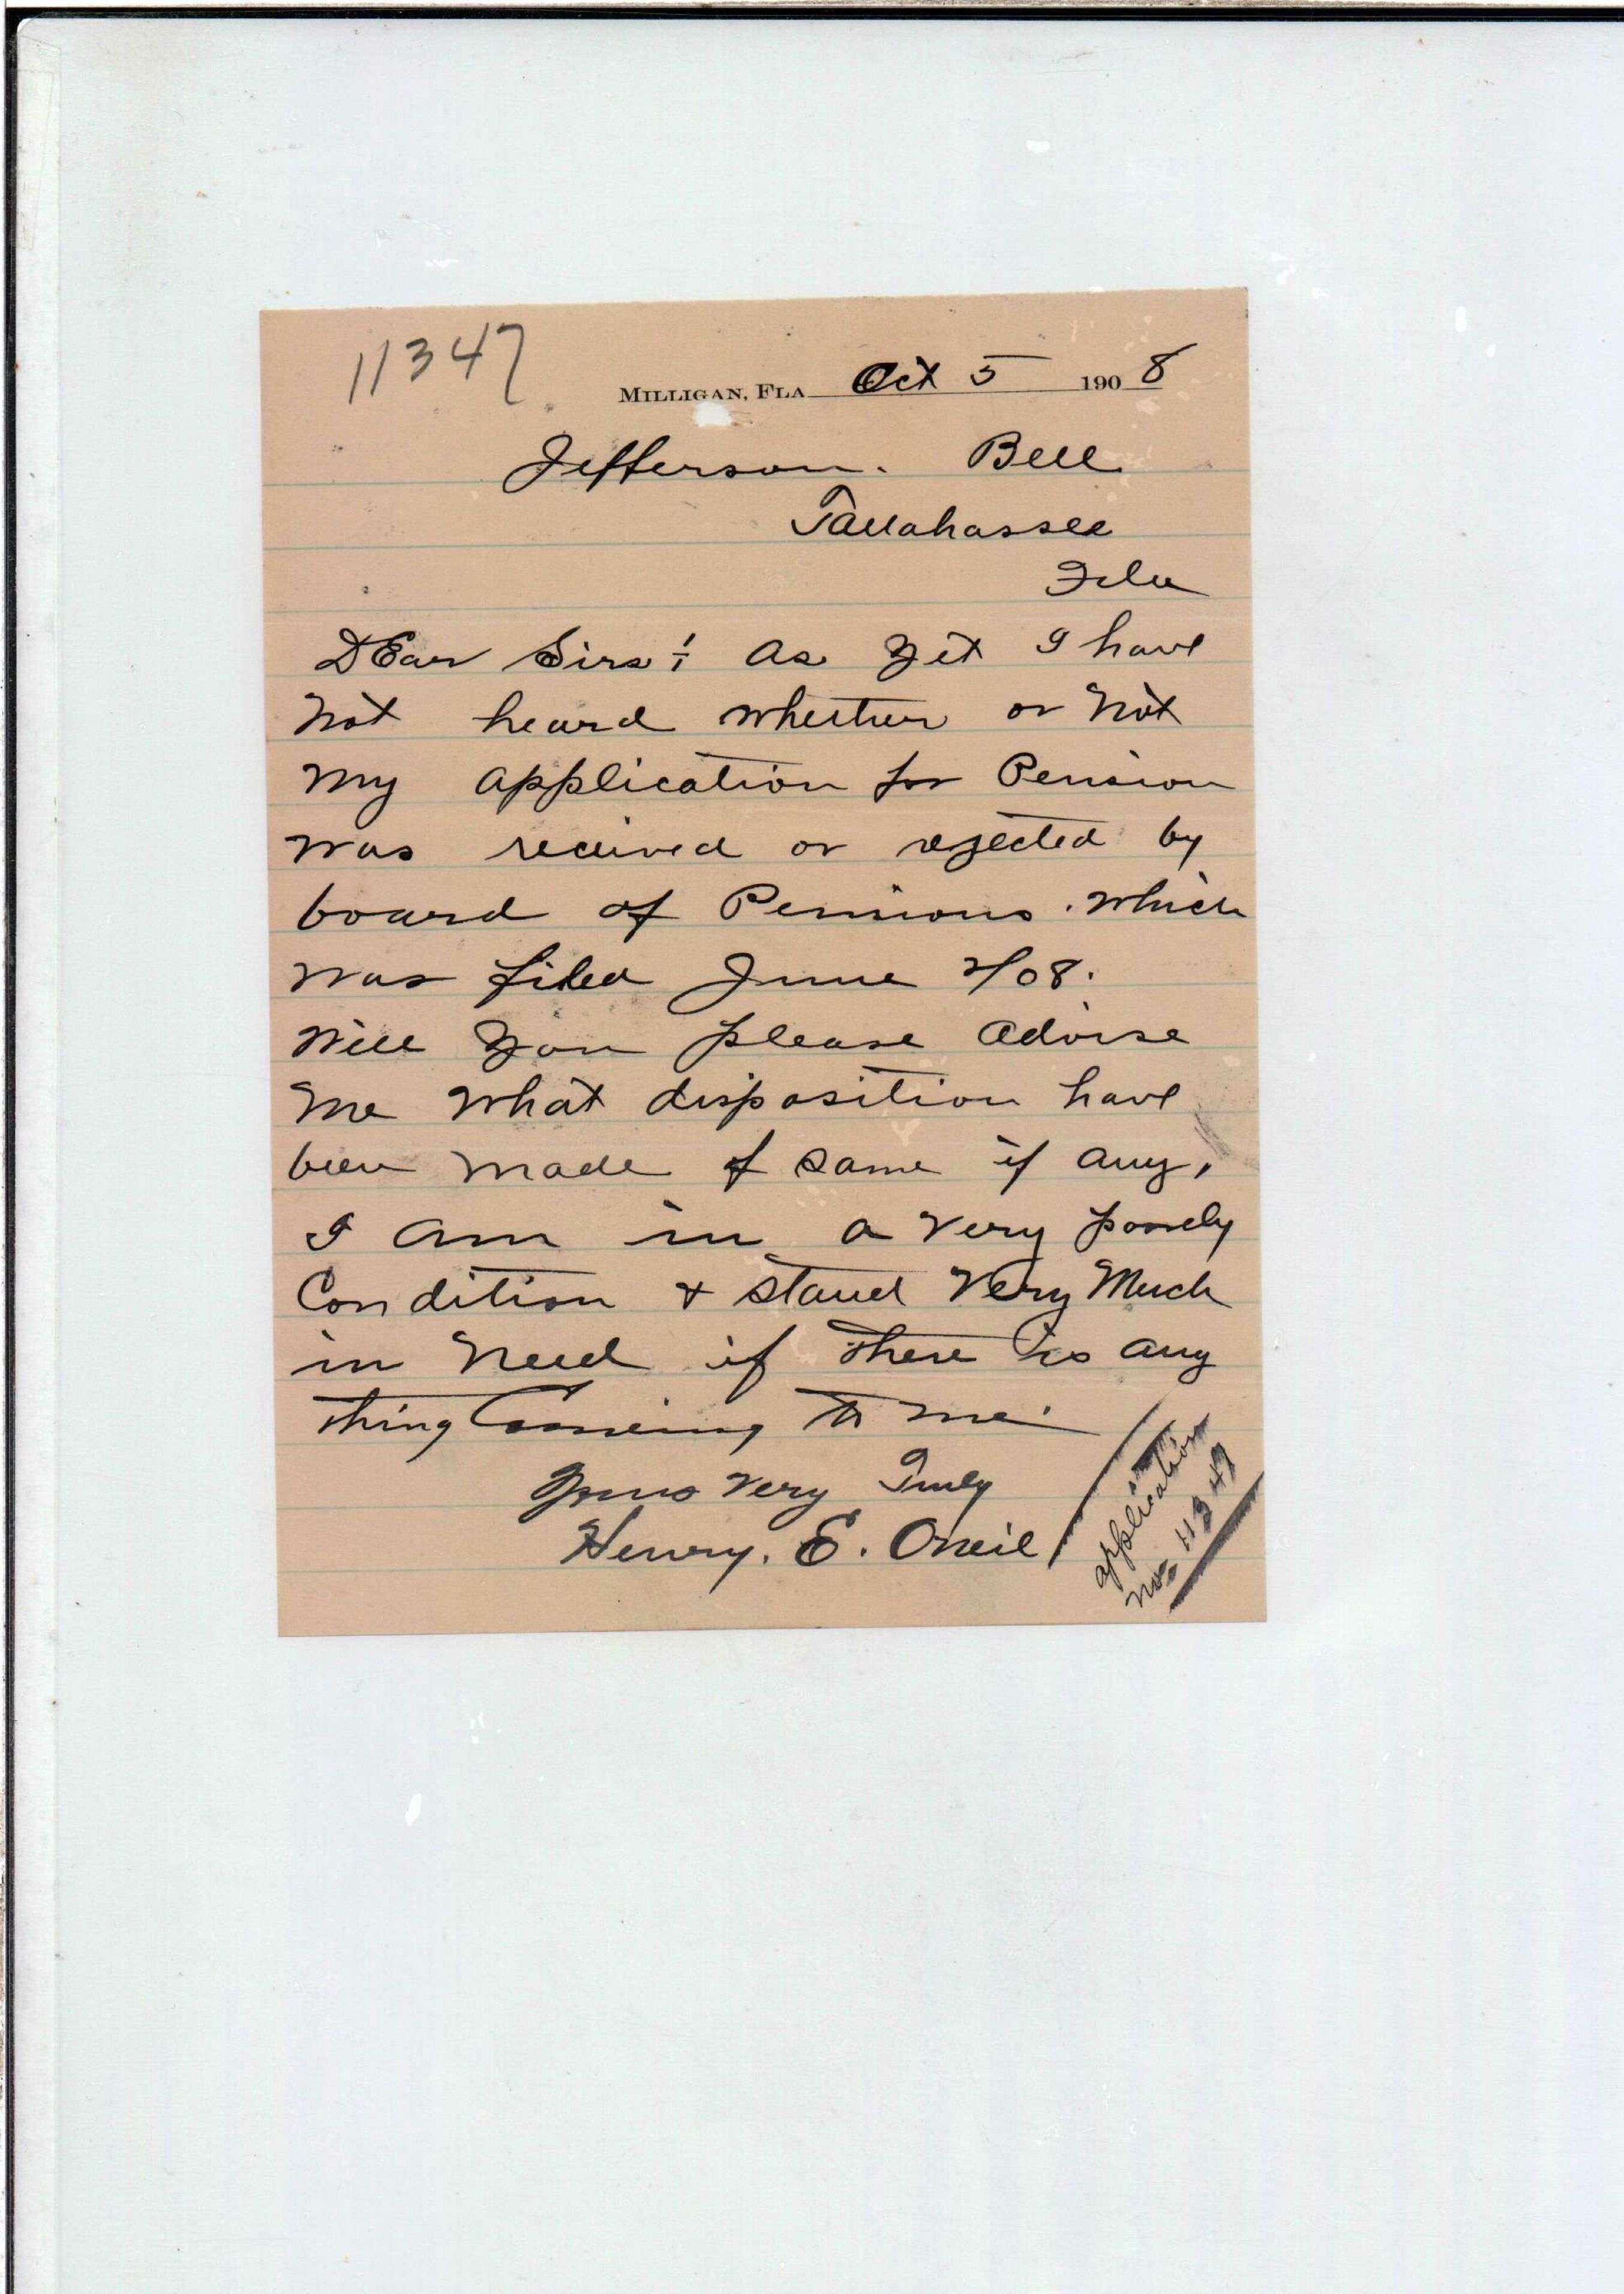 11347
MILLIGAN, FLA Oct 5 1908
Jefferson. Bell
Tallahassee
Fla
DEar Sirs:- As yet I have
Not heard whether or Not
My application for Pension
was recieved or rejected by
board of Pensions. which
was filed June 2/08.
Will you please advise
Me What disposition have
been made of same if any,
I am in a very poorely
Condition & stand Very Much
in Need if there is any
thing Comeing to me.
Yours Very Truly
Henry. E. Oneil
application
No= 11347